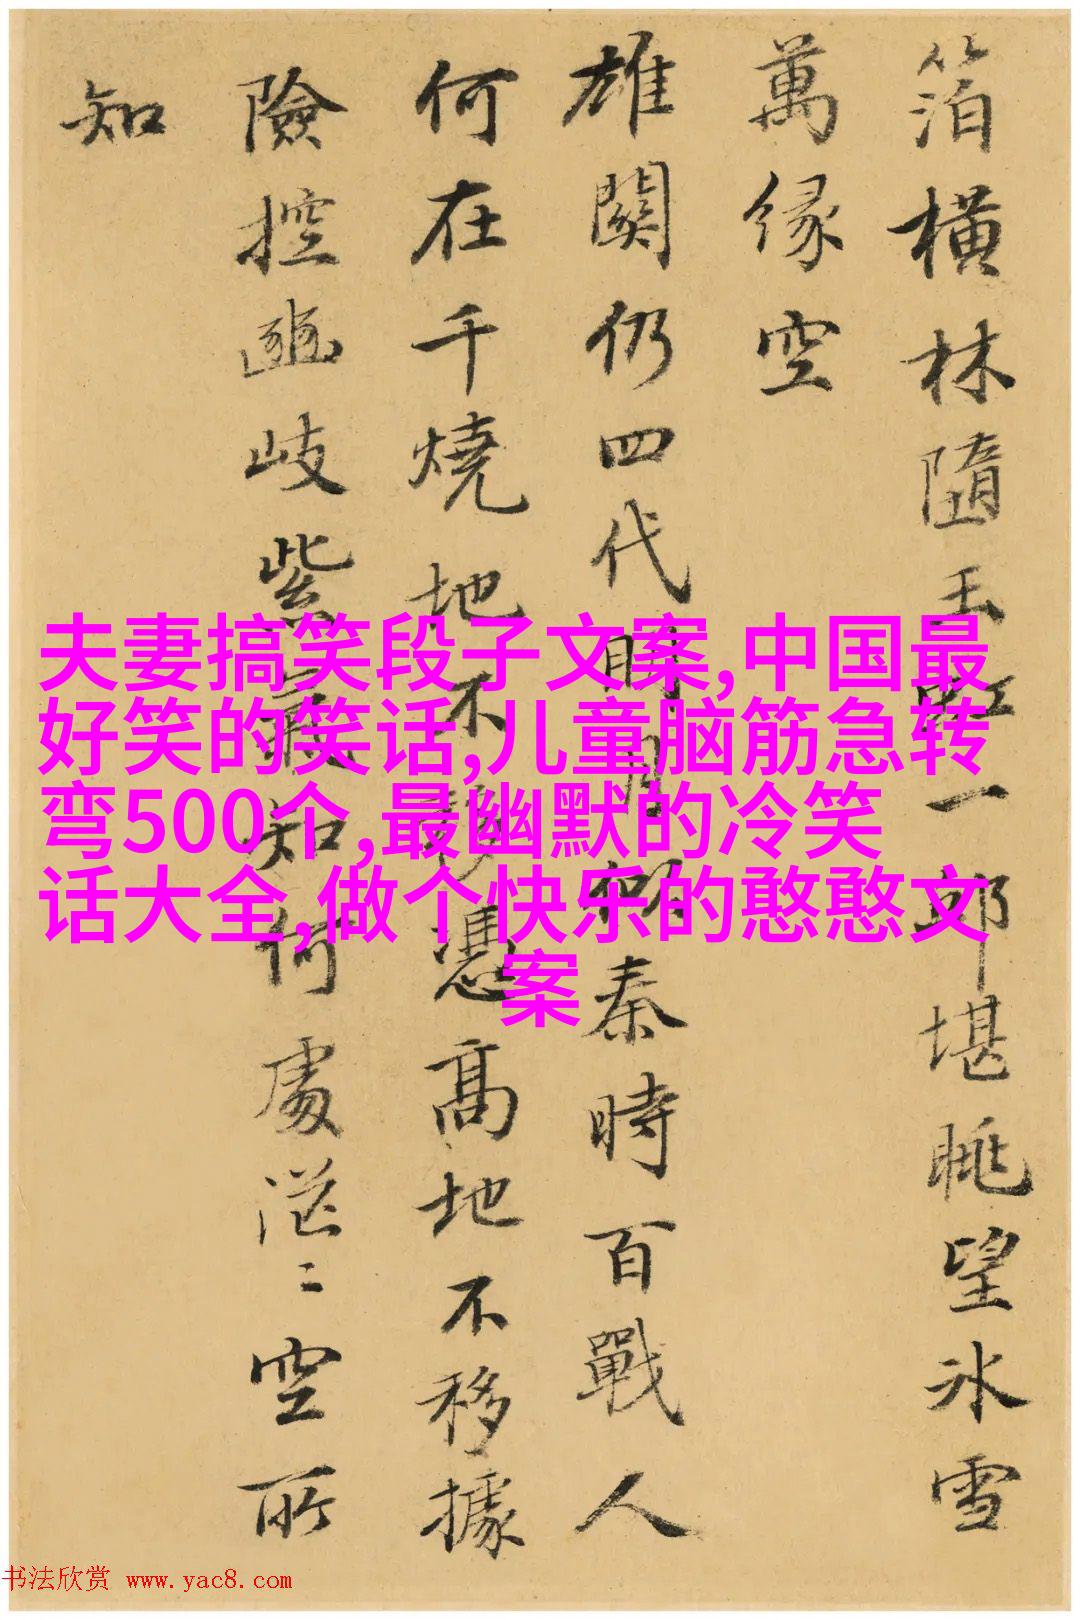 箔橫林隨玉虹一邱堪眺望冰雪
萬緣空
雄關仍四代明月秦時百戰人
何在千燒地不憑高地不移據
險控幽岐紫最知何處茫〻空所
知
夫妻搞笑段子文案,中国最
好笑的笑话,儿童脑筋急转
弯500个,最幽默的冷笑
话大全,做个快乐的憨憨文
案
书法欣赏 www.yac8.com